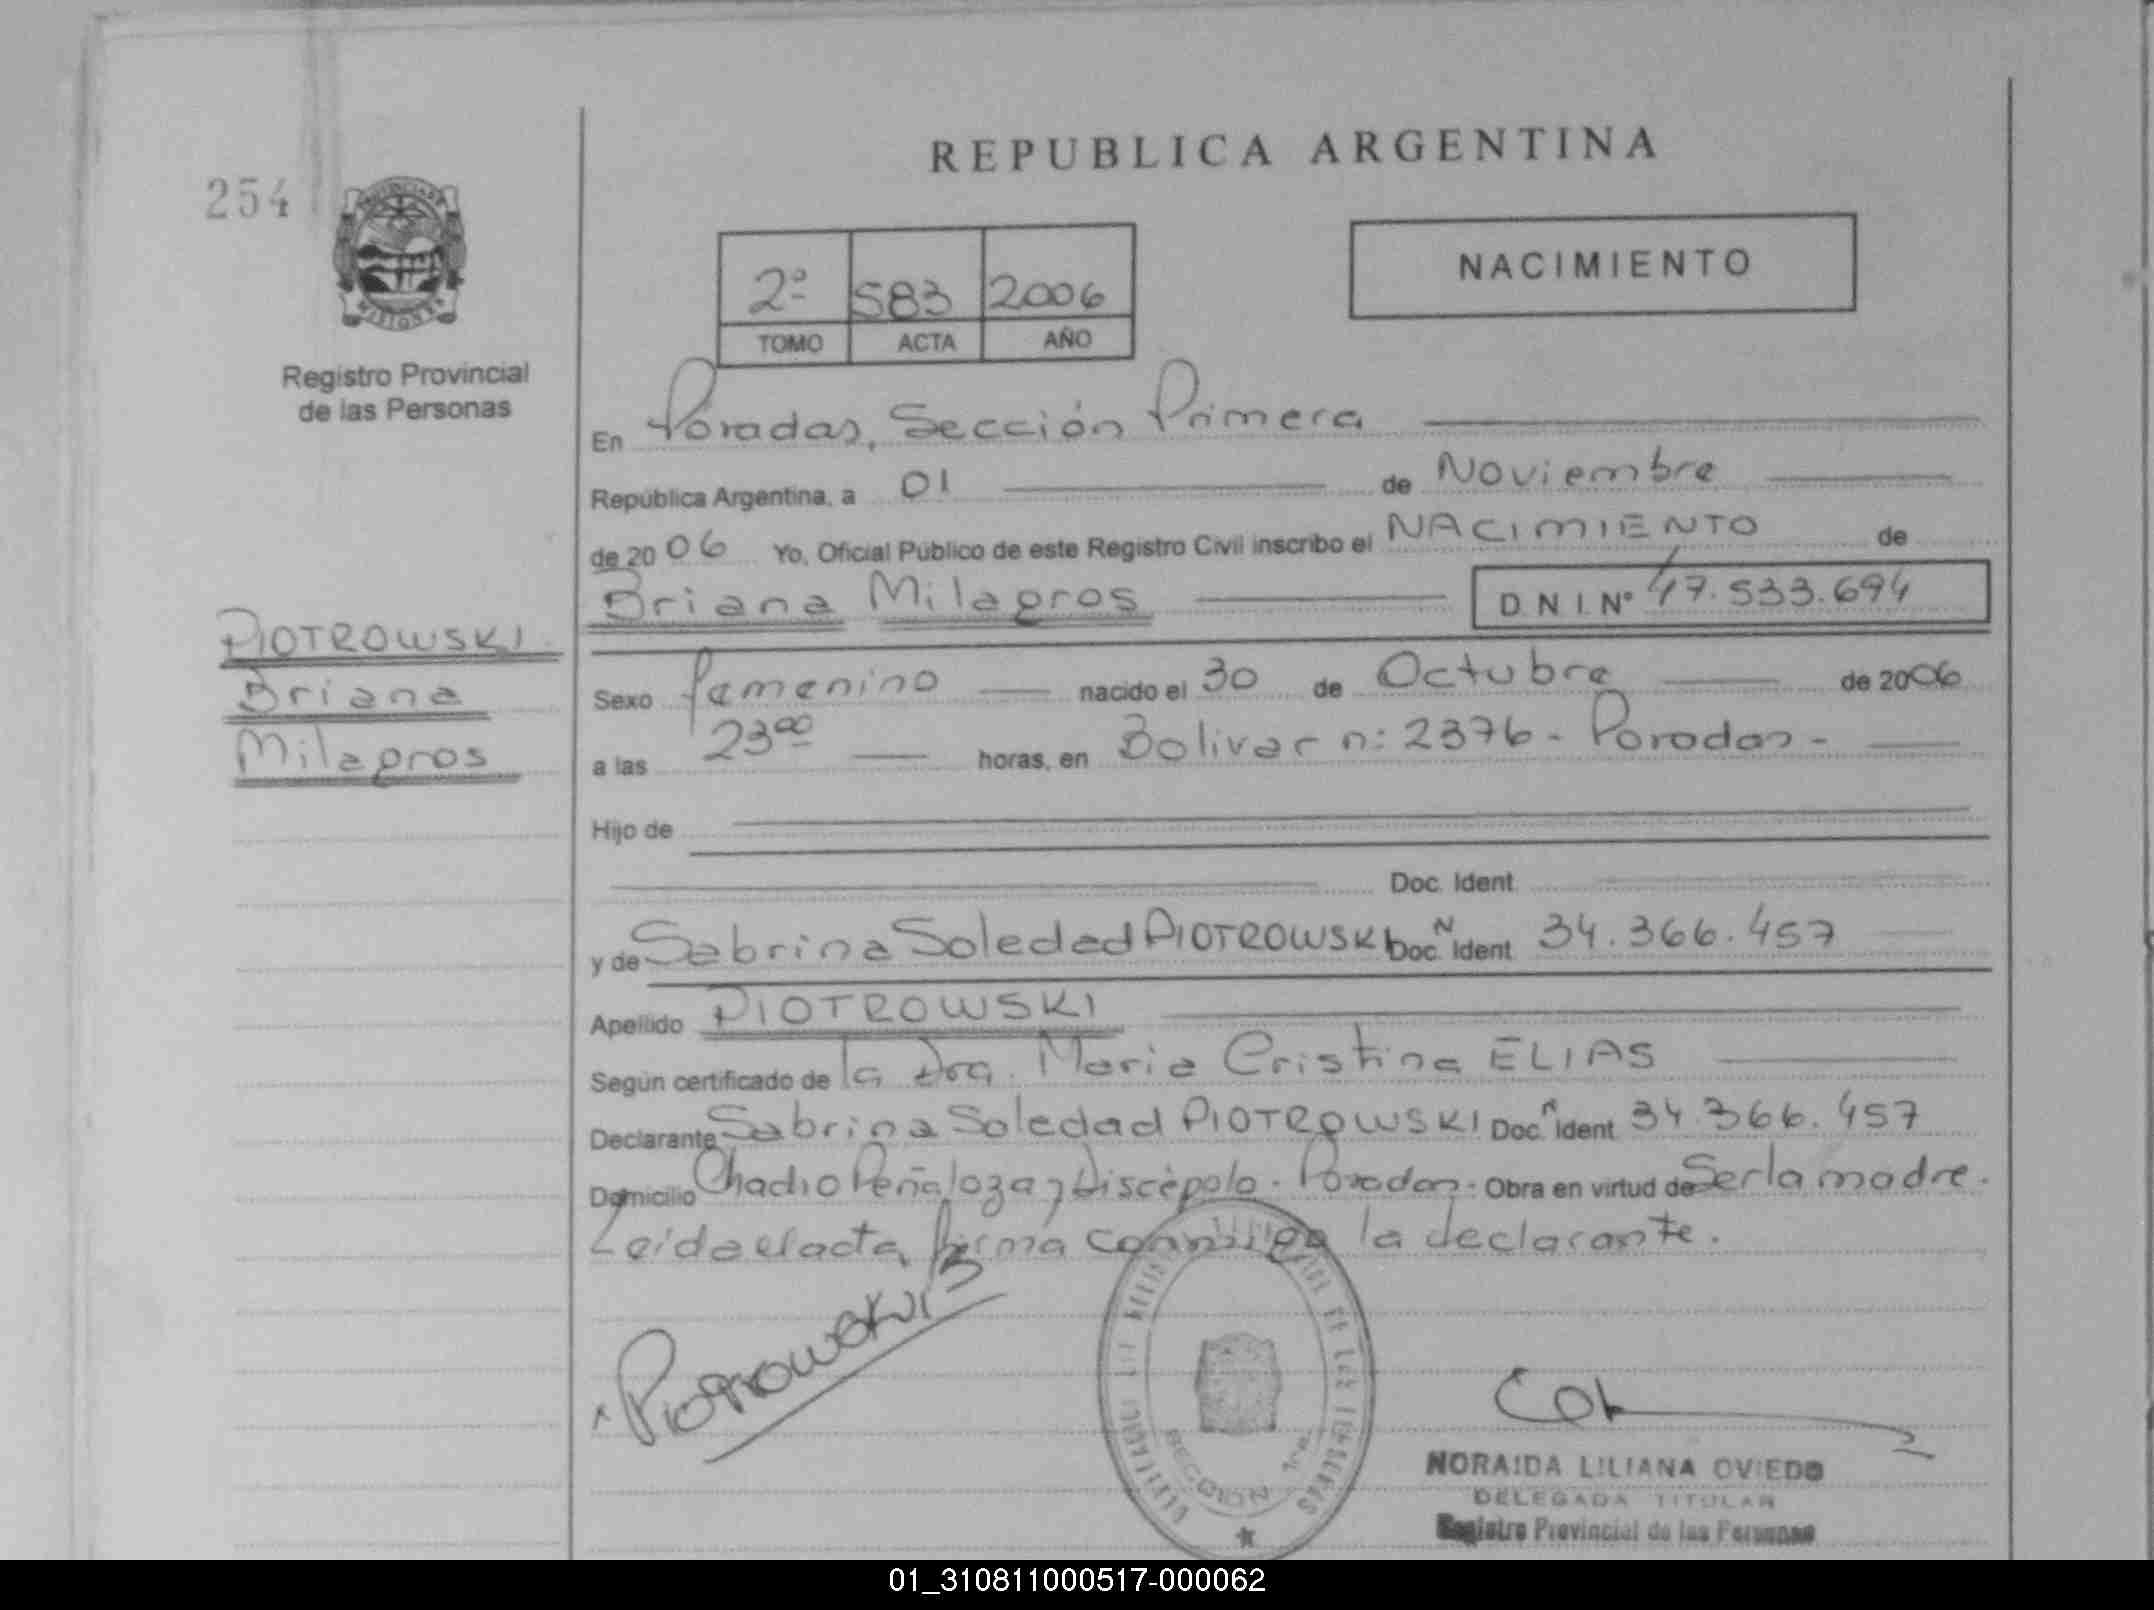 REPUBLICA ARGENTINA
254
NACIMIENTO
2º 583 2006
TOMO ACTA AÑO
Registro Provincial
de las Personas
En Posadas, Sección Primera
República Argentina, a 01 de Noviembre
de 2006 Yo, Oficial Público de este Registro Civil inscribo el NACIMIENTO de
Briana Milagros D.N.I. Nº 47.533.694
PIOTROWSKI
Briana
Milagros
Sexo femenino nacido el 30 de Octubre de 2006
a las 23⁰⁰ horas, en Bolivar n: 2376 - Posadas -
Hijo de
Doc. Ident.
y de Sabrina Soledad PIOTROWSKI Doc. N Ident. 34.366.457
Apellido PIOTROWSKI
Según certificado de la Dra. Maria Cristina ELIAS
Declarante Sabrina Soledad PIOTROWSKI Doc. N Ident. 34.366.457
Domicilio Chacho Peñaloza y Discépolo - Posadas - Obra en virtud de Ser la madre.
Leída el acta, firma conmigo la declarante.
Piotrowski
SECCION 1ra.
NORAIDA LILIANA OVIEDO
DELEGADA TITULAR
Registro Provincial de las Personas
01_310811000517-000062